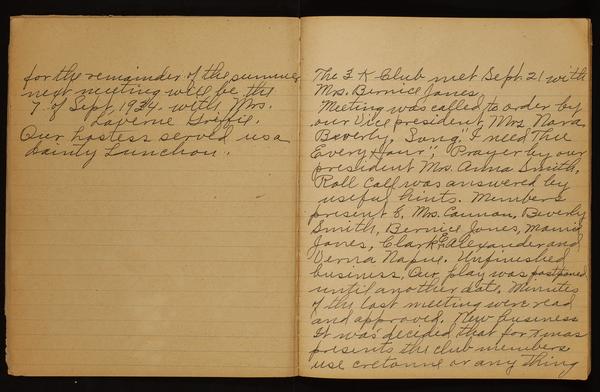 for the remainder of the summer
next meeting will be the
7 of Sept, 1934. with Mrs.
Laverne
Our hostess served us a
dainty Luncheon.
The 3 K Club met Sept. 21 with
Mrs. Bernice Jones
Meeting was called to order by
our Vice president, Mrs Nora
Beverly. Song "I need Thee
Every Hour", Prayer by our
president Mrs. Anna Smith,
Roll Call was answered by
useful hints. Members
present 8, Mrs. Cannan, Beverly
Smith, Bernice Jones, Mamie
Jones, Clark, Alexander and
Verna Napue. Unfinished
business. Our play was postponed
until another date. Minutes
of the last meeting were read
and approved. New business
It was decided that for Xmas
presents the club members
use cretonne or any thing